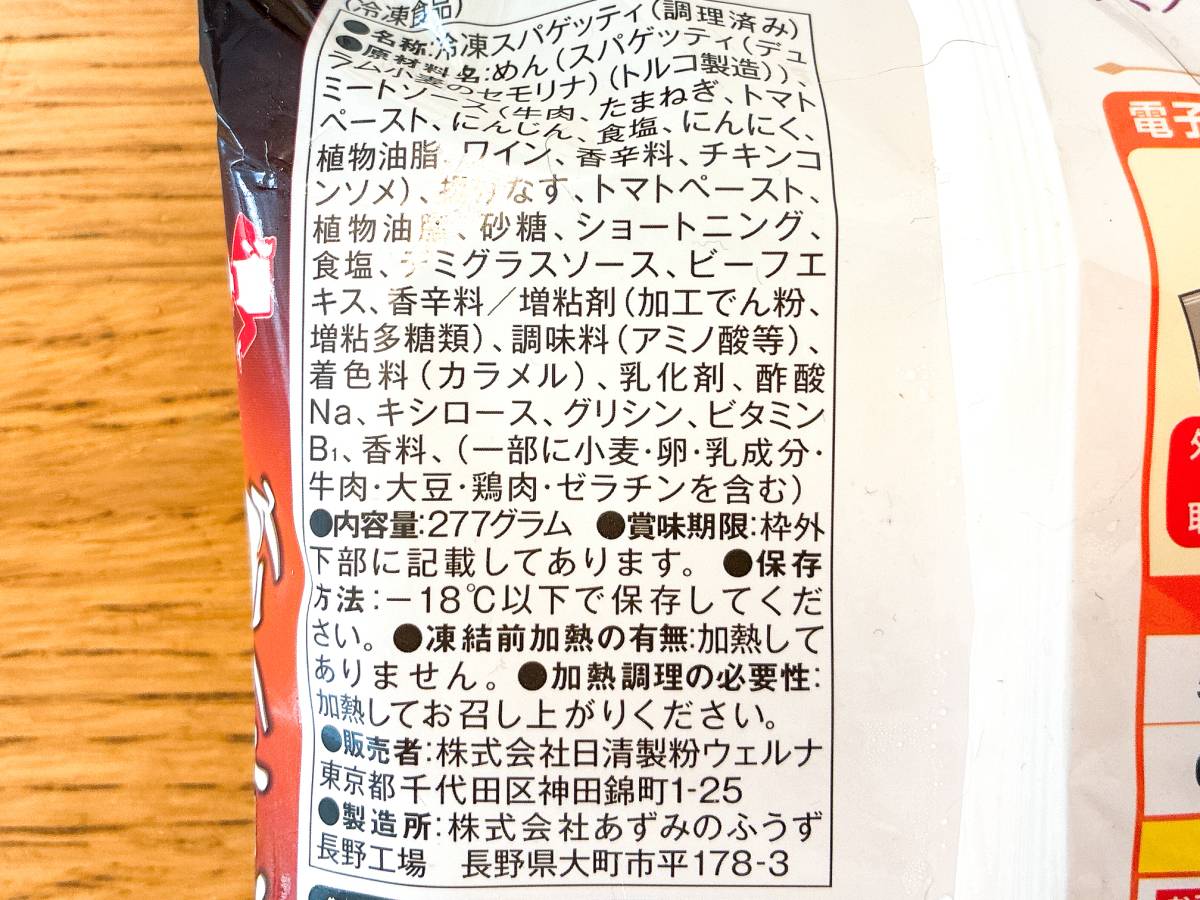 (冷凍食品)
●名称:冷凍スパゲッティ(調理済み)
●原材料名:めん(スパゲッティ(デュ
ラム小麦のセモリナ)(トルコ製造))、
ミートソース(牛肉、たまねぎ、トマト
ペースト、にんじん、食塩、にんにく、
植物油脂、ワイン、香辛料、チキンコ
ンソメ)、揚げなす、トマトペースト、
植物油脂、砂糖、ショートニング、
食塩、デミグラスソース、ビーフエ
キス、香辛料/増粘剤(加工でん粉、
増粘多糖類)、調味料(アミノ酸等)、
着色料(カラメル)、乳化剤、酢酸
Na、キシロース、グリシン、ビタミン
B₁、香料、(一部に小麦・卵・乳成分・
牛肉・大豆・鶏肉・ゼラチンを含む)
●内容量:277グラム ●賞味期限:枠外
下部に記載してあります。 ●保存
方法:−18℃以下で保存してくだ
さい。●凍結前加熱の有無:加熱して
ありません。●加熱調理の必要性:
加熱してお召し上がりください。
●販売者:株式会社日清製粉ウェルナ
東京都千代田区神田錦町1-25
●製造所:株式会社あずみのふうず
長野工場 長野県大町市平178-3
電子